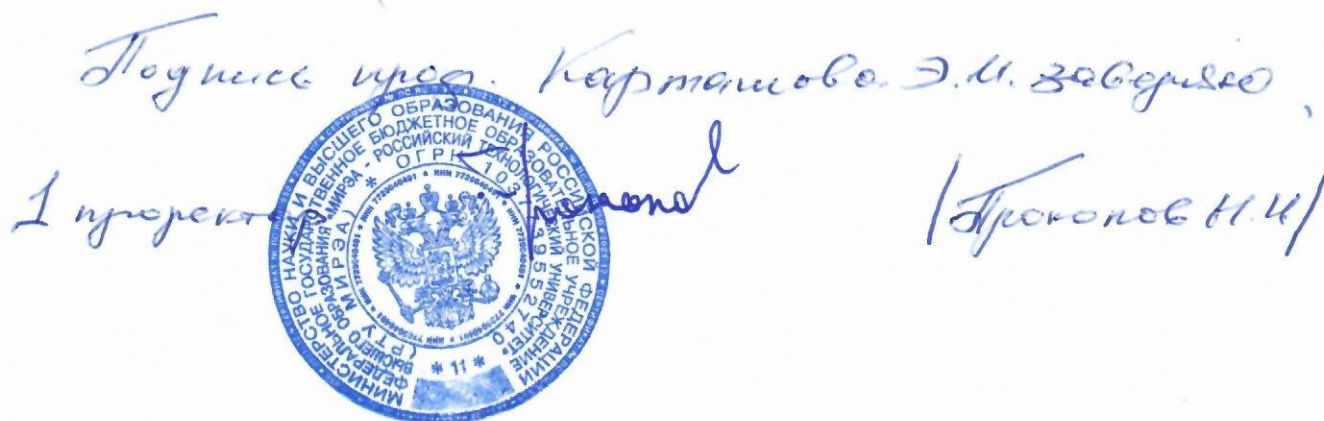 Подпись проф. Карташова Э.М. заверяю,
1 проректор
/Прокопов Н.И/
МИНИСТЕРСТВО НАУКИ И ВЫСШЕГО ОБРАЗОВАНИЯ РОССИЙСКОЙ ФЕДЕРАЦИИ
ФЕДЕРАЛЬНОЕ ГОСУДАРСТВЕННОЕ БЮДЖЕТНОЕ ОБРАЗОВАТЕЛЬНОЕ УЧРЕЖДЕНИЕ
ВЫСШЕГО ОБРАЗОВАНИЯ «МИРЭА - РОССИЙСКИЙ ТЕХНОЛОГИЧЕСКИЙ УНИВЕРСИТЕТ»
(РТУ МИРЭА) * ОГРН
* 11 *